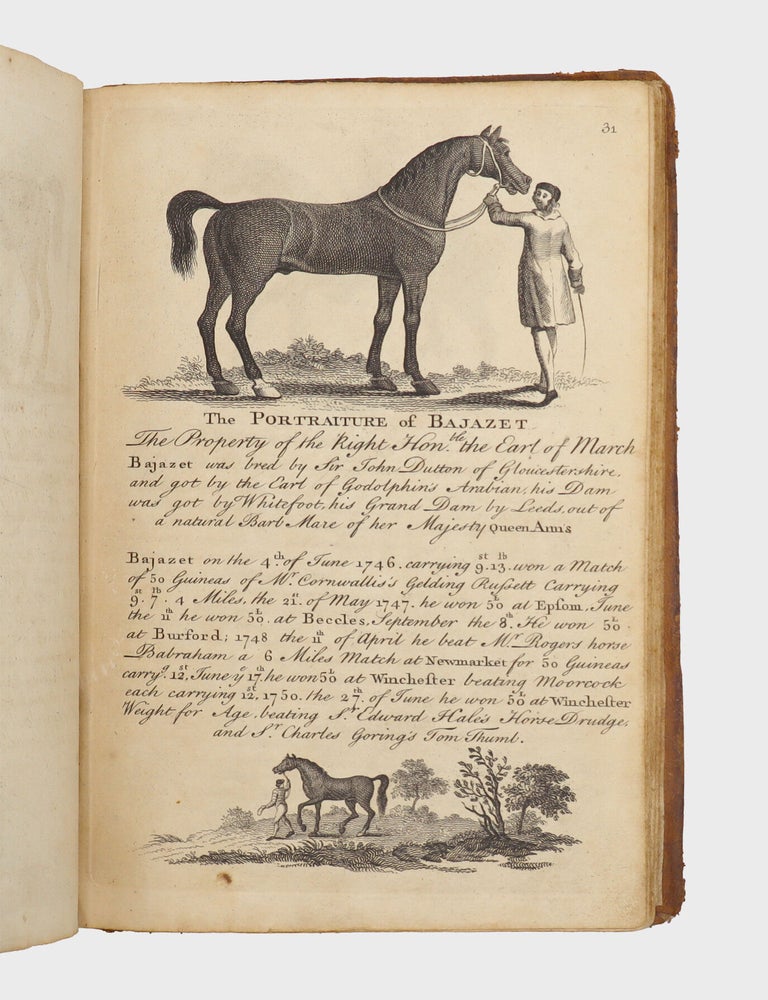 31
The PORTRAITURE of BAJAZET
The Property of the Right Hon.ble the Earl of March
Bajazet was bred by Sir John Dutton of Gloucestershire,
and got by the Earl of Godolphin's Arabian, his Dam
was got by Whitefoot, his Grand Dam by Leeds, out of
a natural Barb Mare of her Majesty Queen Ann's
Bajazet on the 4.th of June 1746. carrying 9.st 13.lb won a Match
of 50 Guineas of M.r Cornwallis's Gelding Ruſsett Carrying
9.st 7.lb 4 Miles, the 21.st of May 1747. he won 50.L at Epſom, June
the 11.th he won 50.L at Beccles, September the 8.th He won 50.L
at Burford; 1748 the 11.th of April he beat M.r Rogers horse
Babraham a 6 Miles Match at Newmarket for 50 Guineas
carry.g 12.st, June y.e 17.th he won 50.L at Wincheſter beating Moorcock
each carrying 12.st, 1750. the 27.th of June he won 50.L at Wincheſter
Weight for Age, beating S.r Edward Hale's Horse Drudge,
and S.r Charles Goring's Tom Thumb.